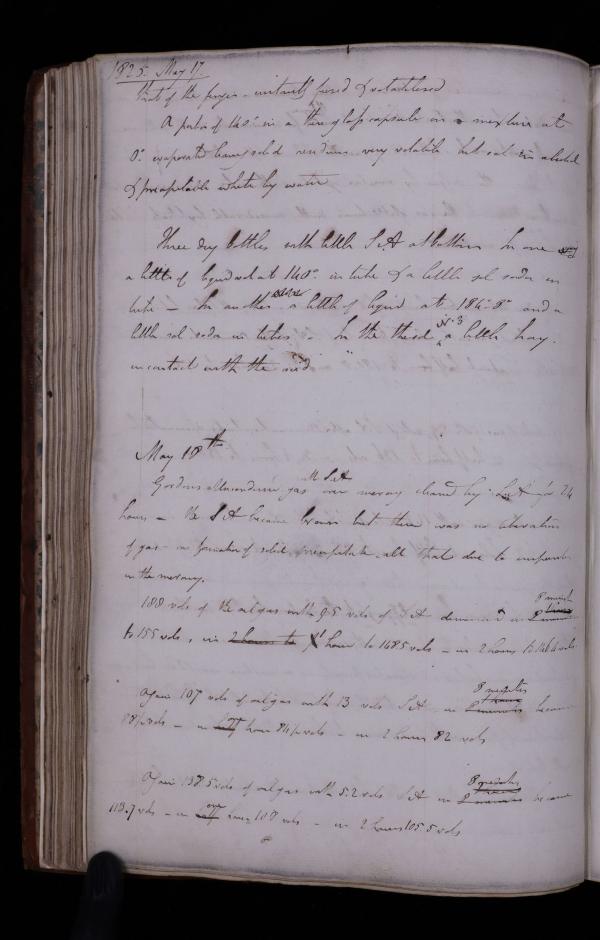 1825. May 17.
that of the
A portion of 140° in a thin glass capsule in a mixture at
0° evaporated leaving solid residuum very volatile but sol in alcohol
& precipitable white by water
Three dry bottles with little S A at bottom In one
a little of liquid vol at 140° in tube & a little sol soda in
tube - In another a little of liquid at 186° 8° and a
little sol soda in tubes - In the third N° 3 a little
in contact with the acid
May 18th
Gordons gas over mercury cleaned by S A for 24
hours - the S A became brown but there was no alteration
of gas - or formation of solid precipitate all that due to
in the mercury.
188 vols of the oil gas with 9.5 vols of S A diminished in 8 minutes
to 155 vols, in 2 hours to 1 hour to 148.5 vols - in 2 hours to 146.4 vols
Again 107 vols of oil gas with 13 vols S A in 8 minutes became
88 vols - in hour 84 vols - in 2 hours 82 vols
Again 138.5 vols of oil gas with 5.2 vols S A in 8 minutes became
113.7 vols - in one hour 108 vols - in 2 hours 105.5 vols